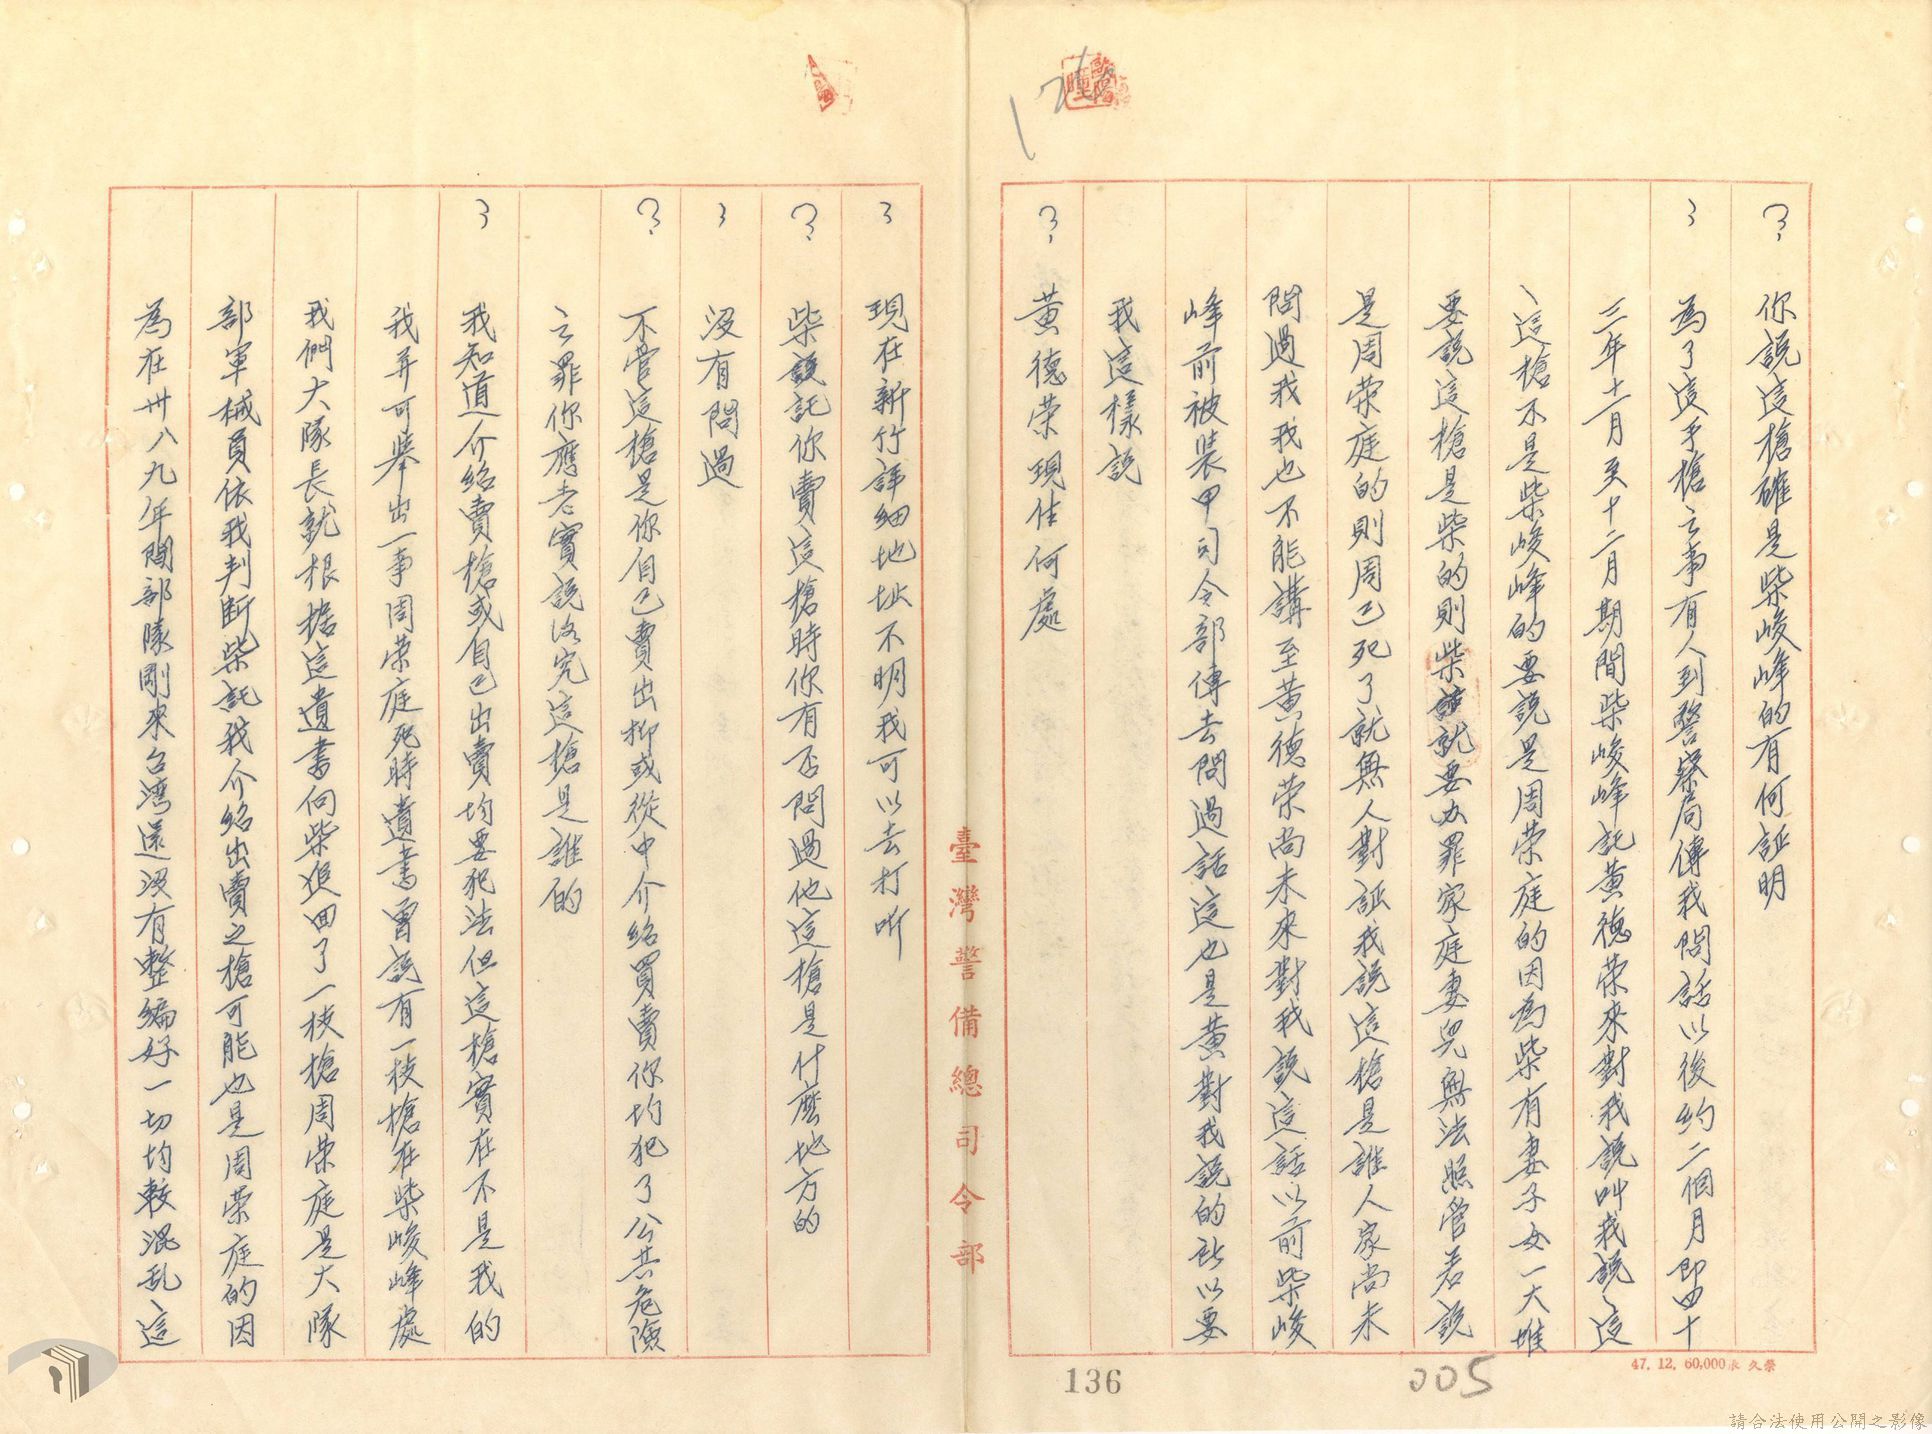 ？　你說這槍確是柴峻峰的有何証明
：　為了這手槍之事有人到警察局傳我問話以後約二個月即四十
三年十一月至十二月期間柴峻峰託黃德荣來對我說叫我說這
這槍不是柴峻峰的要說是周荣庭的因為柴有妻子女一大堆
要說這槍是柴的則柴就要办罪家庭妻兒無法照管若說
是周荣庭的則周已死了就無人對証我說這槍是誰人家尚未
問過我我也不能講至黃德荣尚未來對我說這話以前柴峻
峰前被裝甲司令部傳去問過話這也是黃對我說的所以要
我這樣說
？　黃德荣現住何處
：　現在新竹詳細地址不明我可以去打听
？　柴說託你賣這槍時你有否問過他這槍是什麼地方的
：　沒有問過
？　不管這槍是你自己賣出抑或從中介紹買賣你均犯了公共危險
之罪你應老實說洛究這槍是誰的
：　我知道介紹賣槍或自己出賣均要犯法但這槍實在不是我的
我并可舉出一事周荣庭死時遺書曾說有一枝槍在柴峻峰處
我們大隊長就根據這遺書向柴追回了一枝槍周荣庭是大隊
部軍械員依我判断柴託我介紹出賣之槍可能也是周荣庭的因
為在卅八九年間部隊剛來台湾還沒有整編好一切均較混乱這
臺灣警備總司令部
136
005
47. 12. 60,000
請合法使用公開之影像